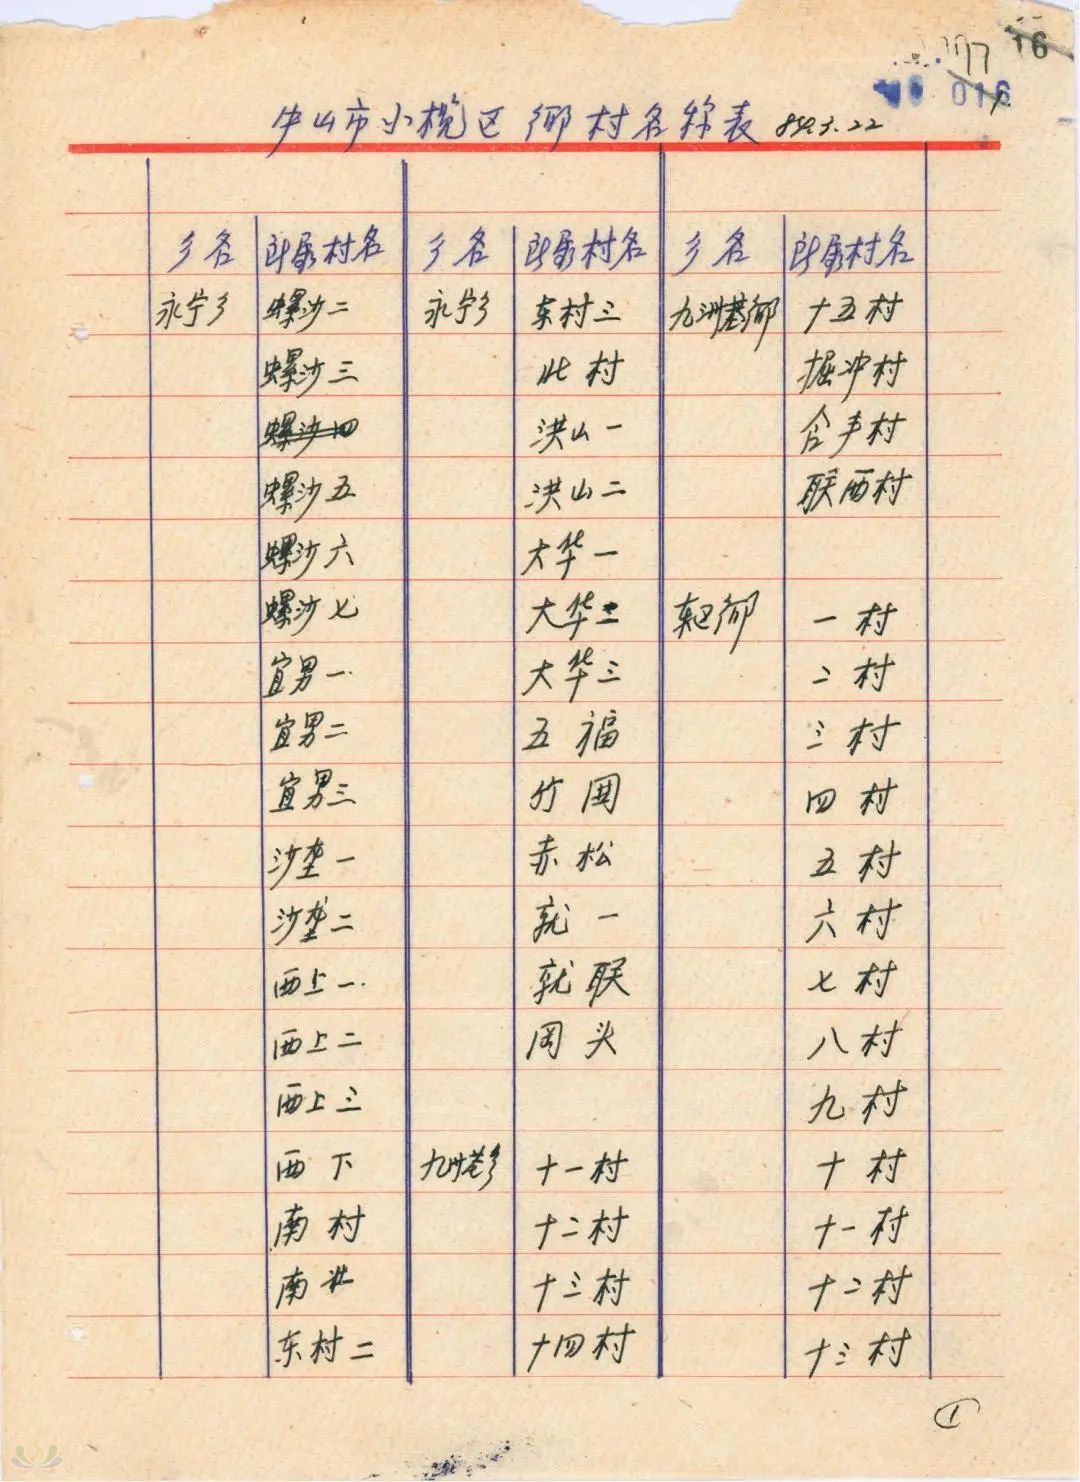 16
016
中山市小榄区鄉村名称表 85.3.22
乡名 所屬村名 乡名 所屬村名 乡名 所屬村名
永宁乡 螺沙二 永宁乡 东村三 九洲基鄉 十五村
螺沙三 北村 掘冲村
螺沙四 洪山一 合丰村
螺沙五 洪山二 联西村
螺沙六 大华一
螺沙七 大华二 东区鄉 一村
宜男一 大华三 二村
宜男二 五福 三村
宜男三 竹囲 四村
沙垄一 赤松 五村
沙垄二 就一 六村
西上一 就联 七村
西上二 岡头 八村
西上三 九村
西下 九洲基乡 十一村 十村
南村 十二村 十一村
南北 十三村 十二村
东村二 十四村 十三村
1